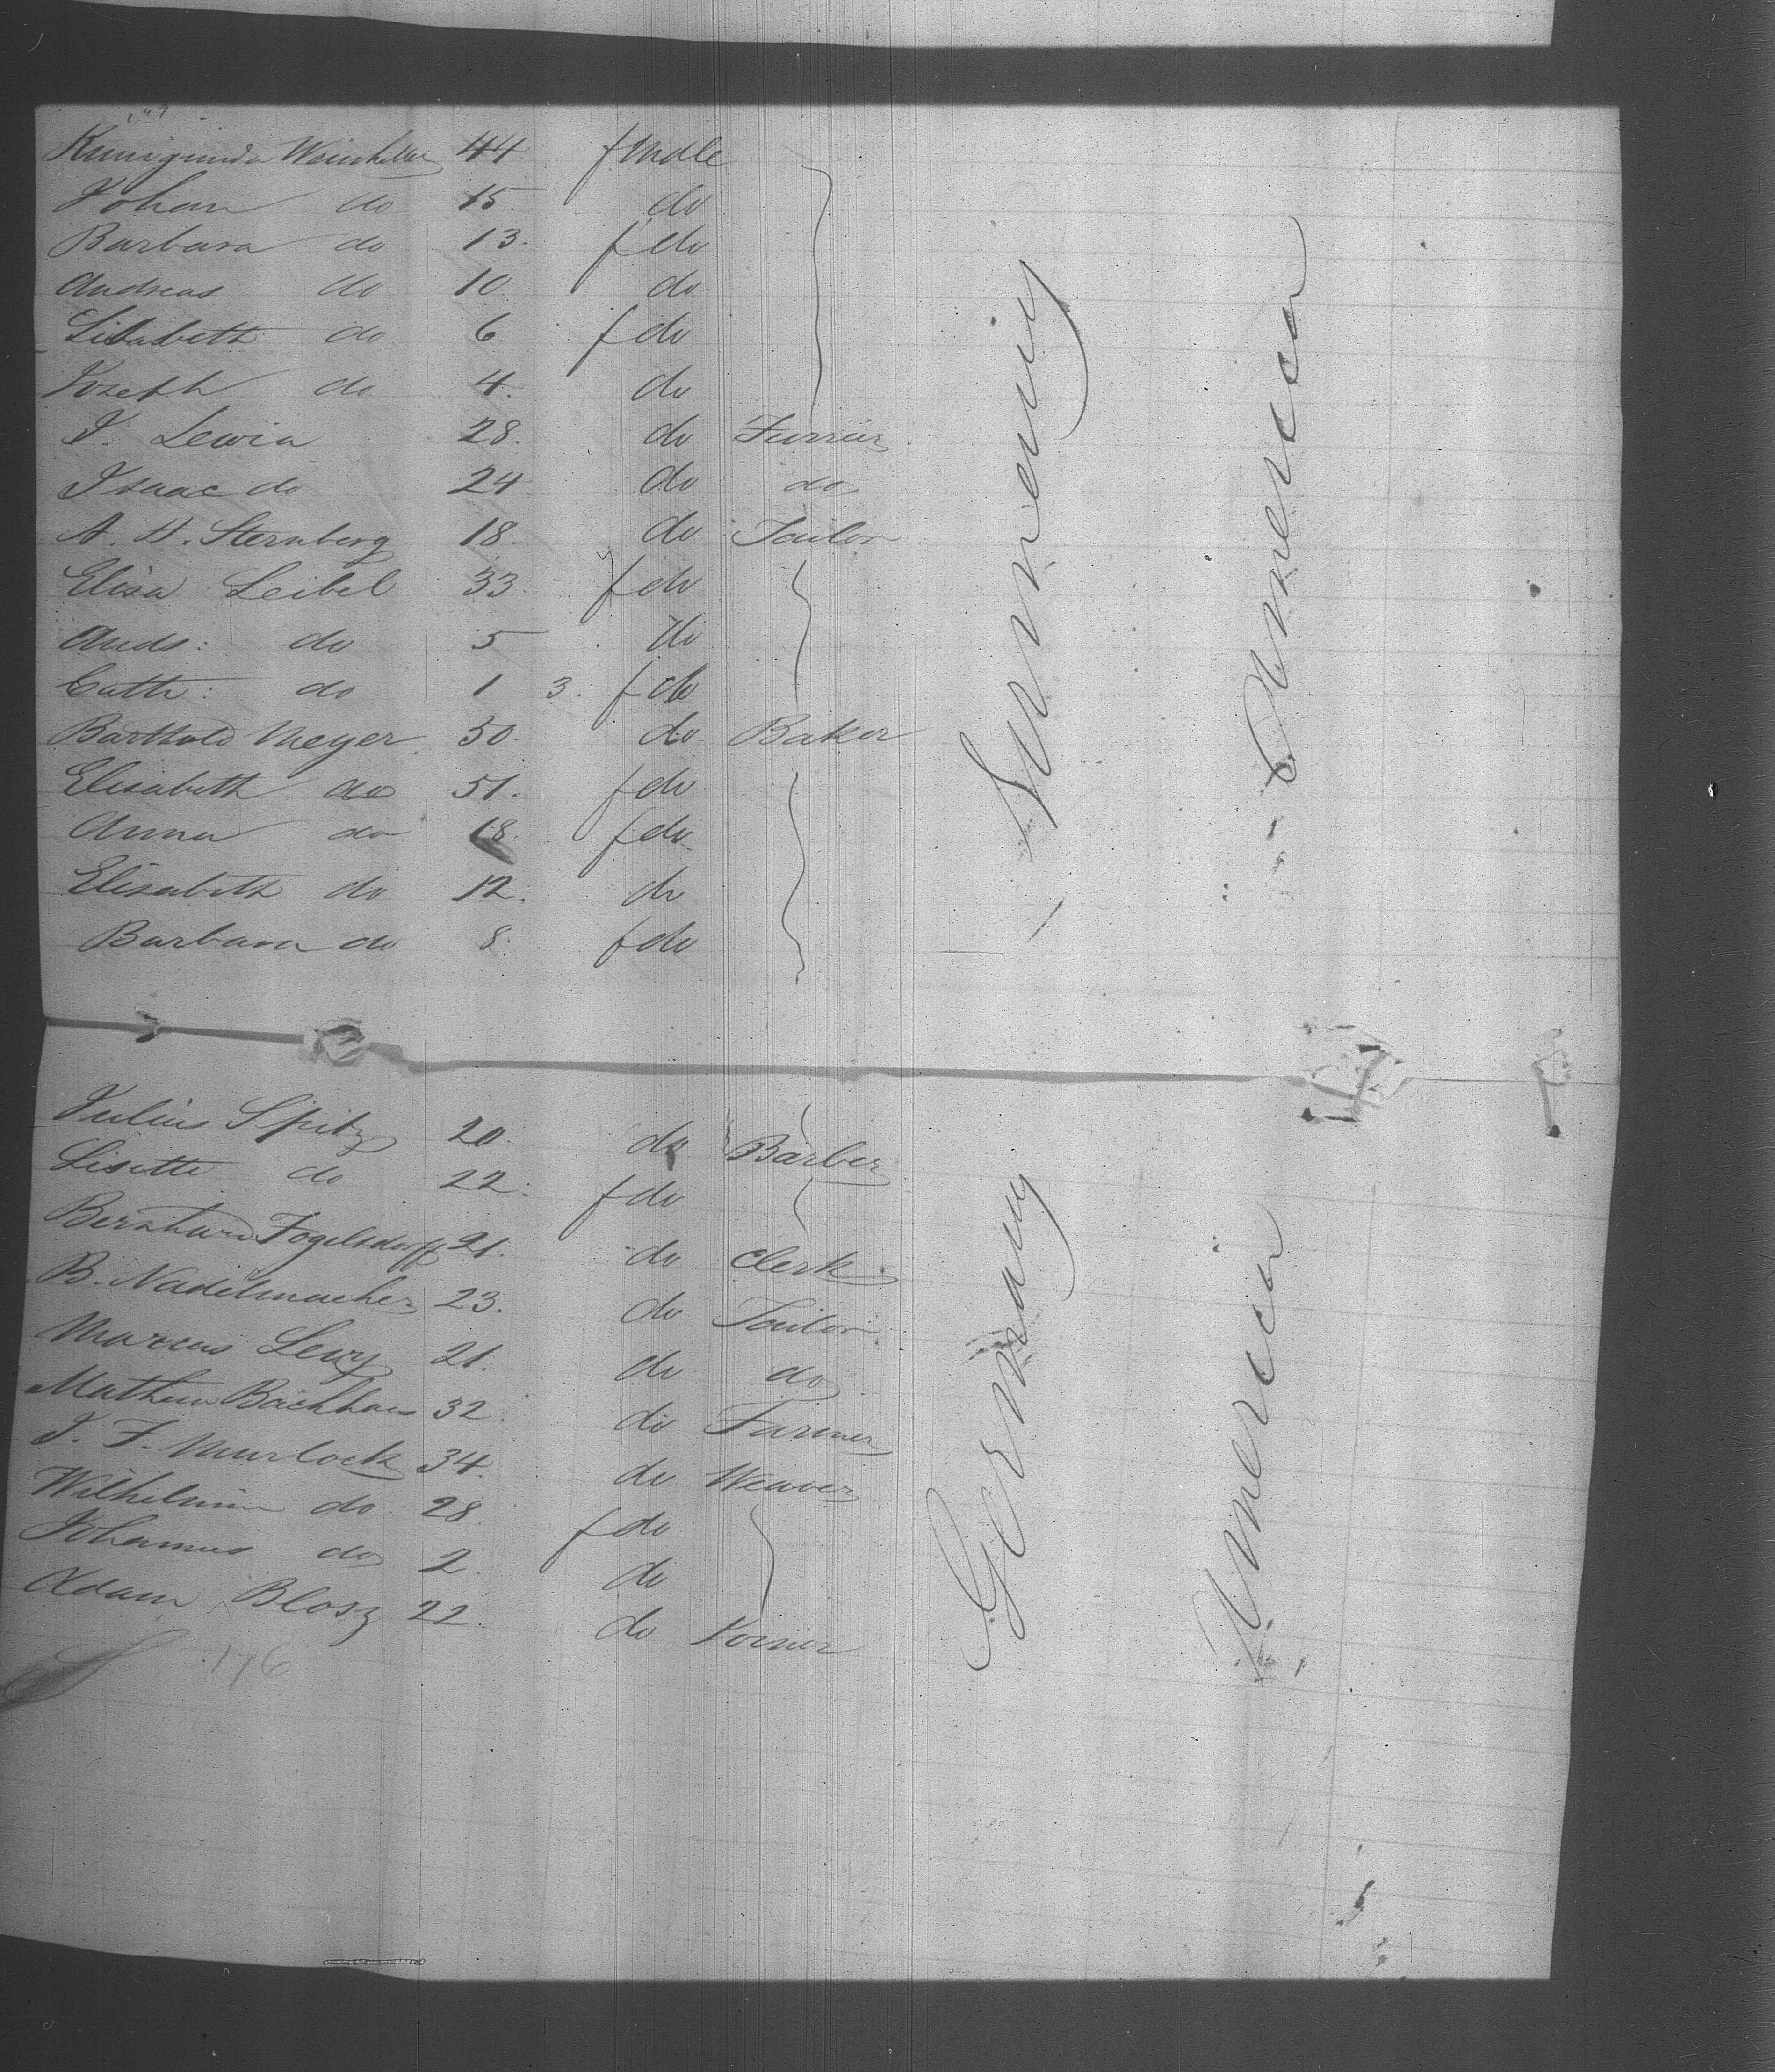 149
Kunigunda Weinkeller 44 fmale
Johan do 15 do
Barbara do 13. f do
Andreas do 10. do
Lisabeth do 6. f do
Joseph do 4. do
J. Lewin 28. do Furrier
Isaac do 24 do do
A. H. Sternberg 18. do Tailor
Elisa Leibel 33. f do
Ands: do 5 do
Cath: do 1 3. f do
Barthold Meyer 50. do Baker
Elisabeth do 51. f do
Anna do 18. f do
Elisabeth do 12. do
Barbara do 8. f do
Germany
America
Julius Spitz 20. do Barber
Lisette do 22. f do
Bernhard Fogelsdorff 21. do Clerk
B. Nadelmacher 23. do Tailor
Marcus Levy 21. do do
Mathew Bachhaus 32. do Farmer
J. F. Murlock 34. do Weaver
Wilhelmine do 28. f do
Johannes do 2. do
Adam Blosz 22. do Joiner
176
Germany
America